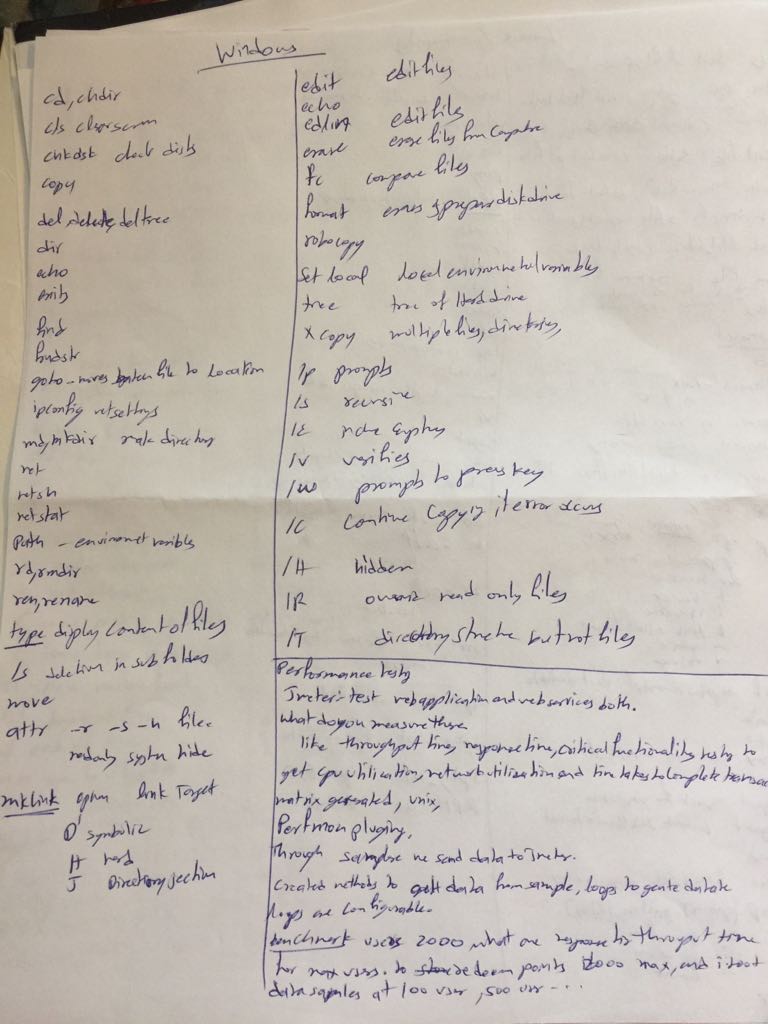 Windows
cd, chdir
cls clearscreen
chkdsk check disks
copy
del, delete, deltree
dir
echo
exit
find
findstr
goto - moves batch file to location
ipconfig netsettings
md, mkdir make directory
net
netsh
netstat
path - environment varibles
rd, rmdir
ren, rename
type display content of files
/s deletion in sub folders
move
attr -r -s -h file
readonly system hide
mklink option link Target
D symbolic
H hard
J Directory
edit edit files
echo
edlin edit files
erase erase files from computer
fc compare files
format erases & prepare disk drive
robocopy
Set local local environmental variables
tree tree of Hard drive
x copy multiple files, directories,
/p prompts
/s recursive
/E
/V verifies
/w prompts to press key
/C Continue Copying if error occurs
/H hidden
/R read only files
/T directory structure but not files
Performance testing
Jmeter:- test web application and web services both.
what do you measure there
like throughput time, response time, critical functionality testing to
get cpu utilisation, network utilization and time takes to complete
matrix generated, unix,
Perfmon plugins,
Through sampler we send data to Jmeter.
Created methods to get data from sample, loops to
loops are configurable.
benchmark users 2000, what are response throughput time
for max users. to points 2000 max, and
data samples at 100 user, 500 user - - -